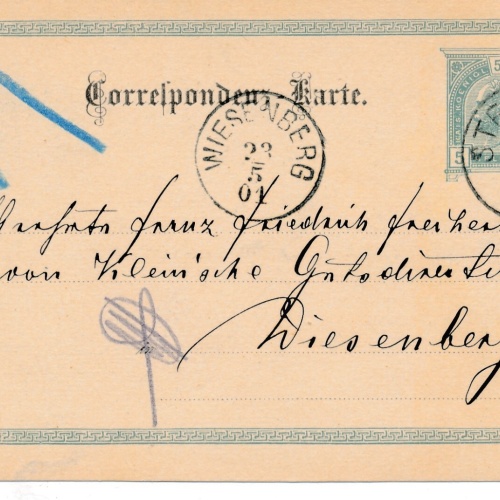 Correspondenz Karte.
5
WIESENBERG
23
5
01
5
ST
Geehrte Franz Friedrich Freiherr
von Klein'sche Gutsdirection
in
Wiesenberg